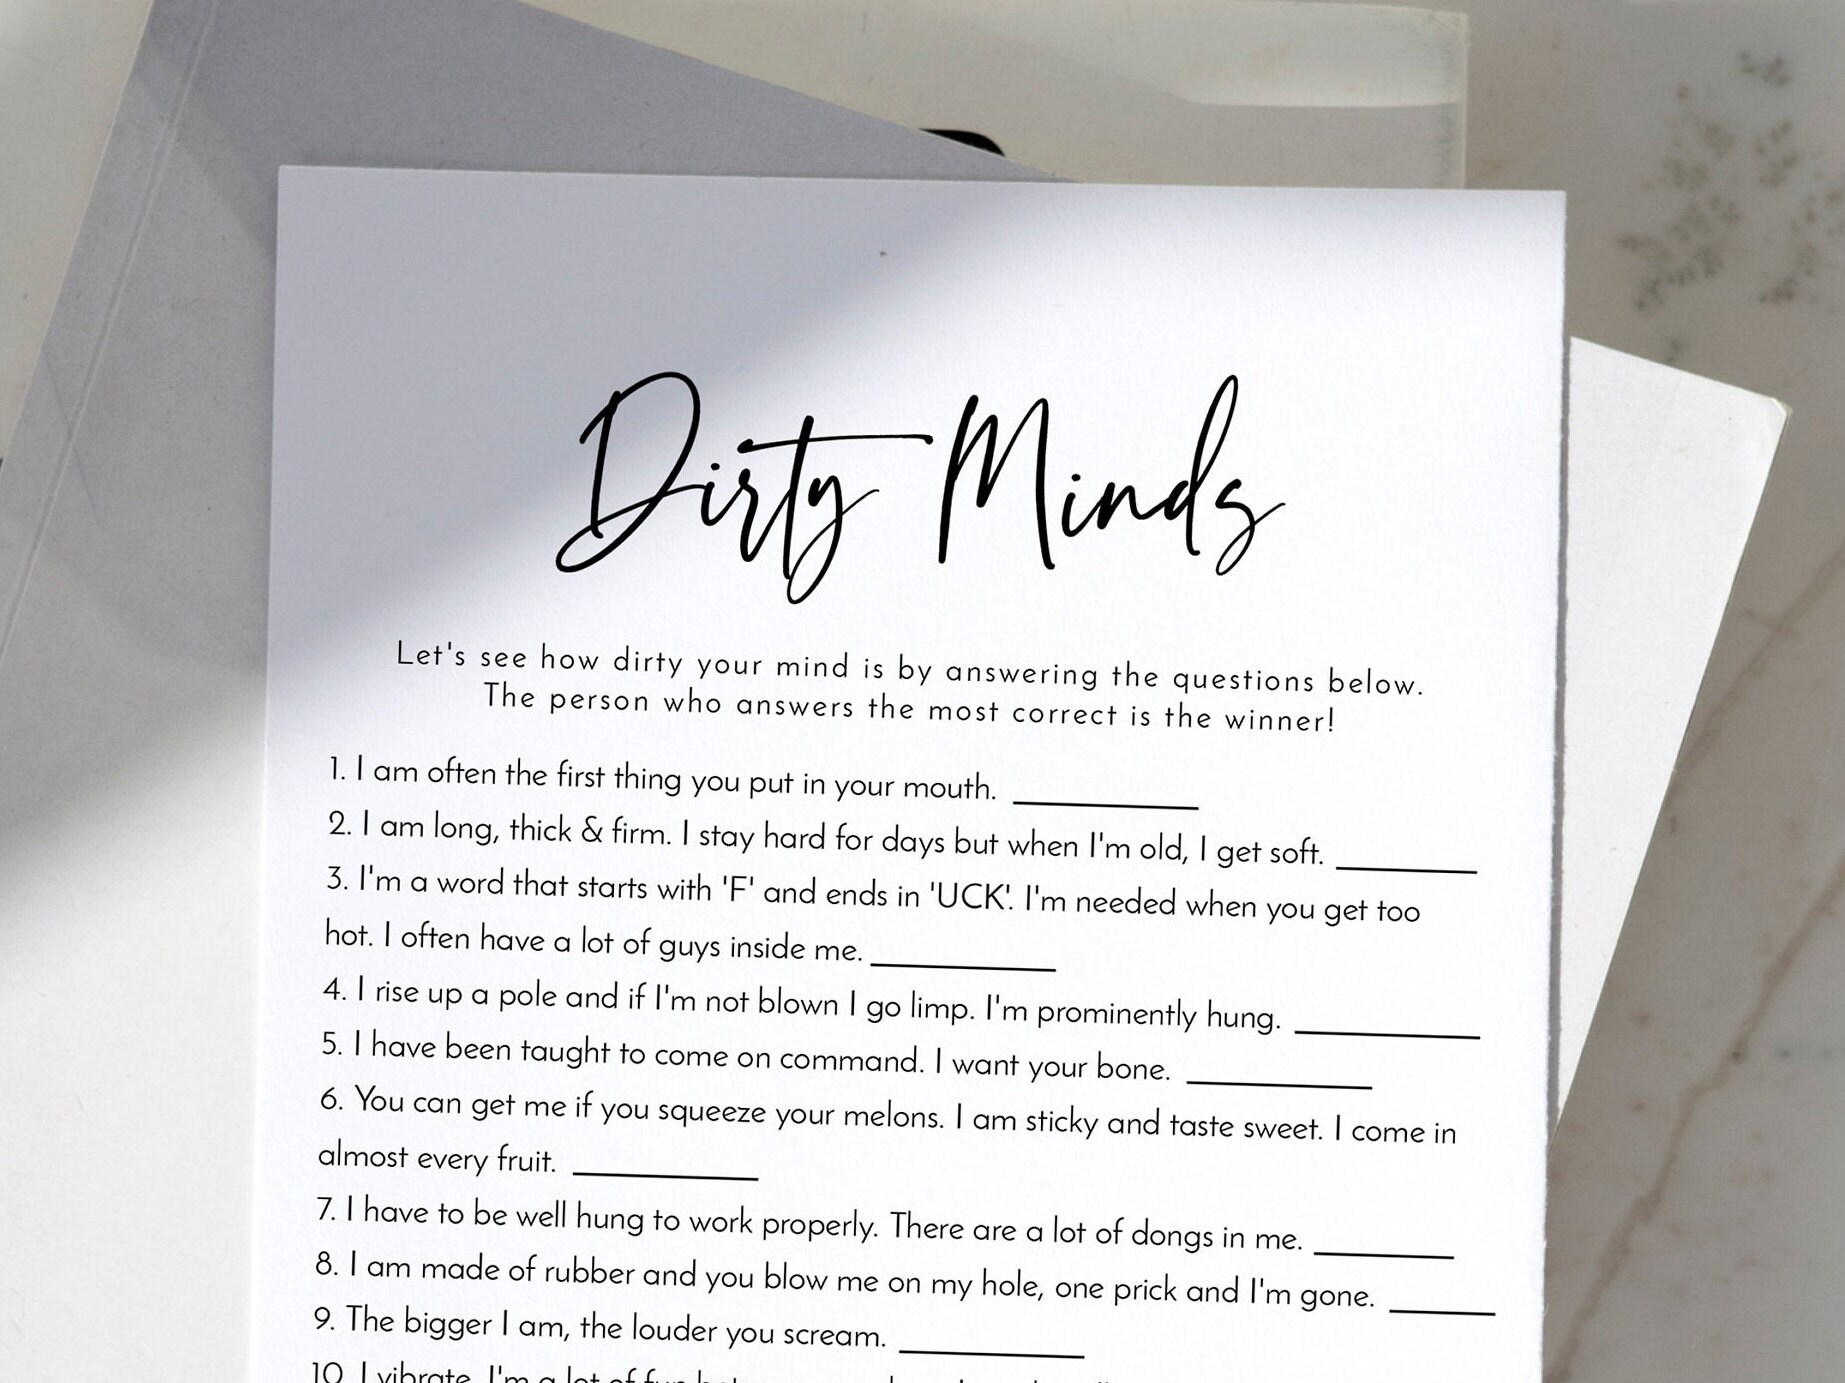 Dirty Minds
Let's see how dirty your mind is by answering the questions below.
The person who answers the most correct is the winner!
1. I am often the first thing you put in your mouth. __________
2. I am long, thick & firm. I stay hard for days but when I'm old, I get soft. __________
3. I'm a word that starts with 'F' and ends in 'UCK'. I'm needed when you get too
hot. I often have a lot of guys inside me. __________
4. I rise up a pole and if I'm not blown I go limp. I'm prominently hung. __________
5. I have been taught to come on command. I want your bone. __________
6. You can get me if you squeeze your melons. I am sticky and taste sweet. I come in
almost every fruit. __________
7. I have to be well hung to work properly. There are a lot of dongs in me. __________
8. I am made of rubber and you blow me on my hole, one prick and I'm gone. __________
9. The bigger I am, the louder you scream. __________
10. I vibrate. I'm a lot of fun